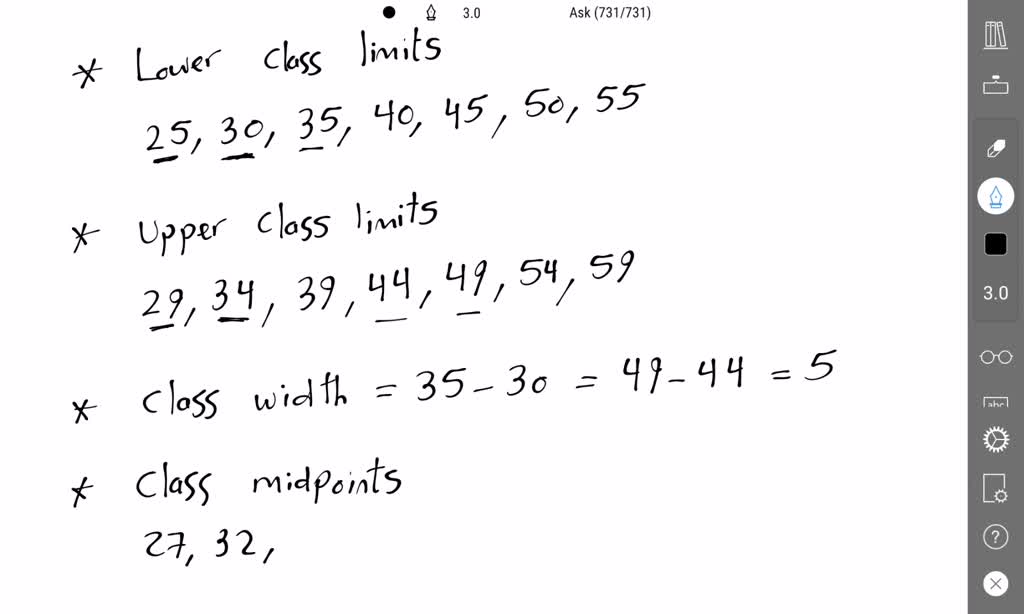 3.0 Ask (731/731)
* Lower class limits
25, 30, 35, 40, 45, 50, 55
* Upper class limits
29, 34, 39, 44, 49, 54, 59
* Class width = 35 - 30 = 49 - 44 = 5
* Class midpoints
27, 32,
3.0
abc
?